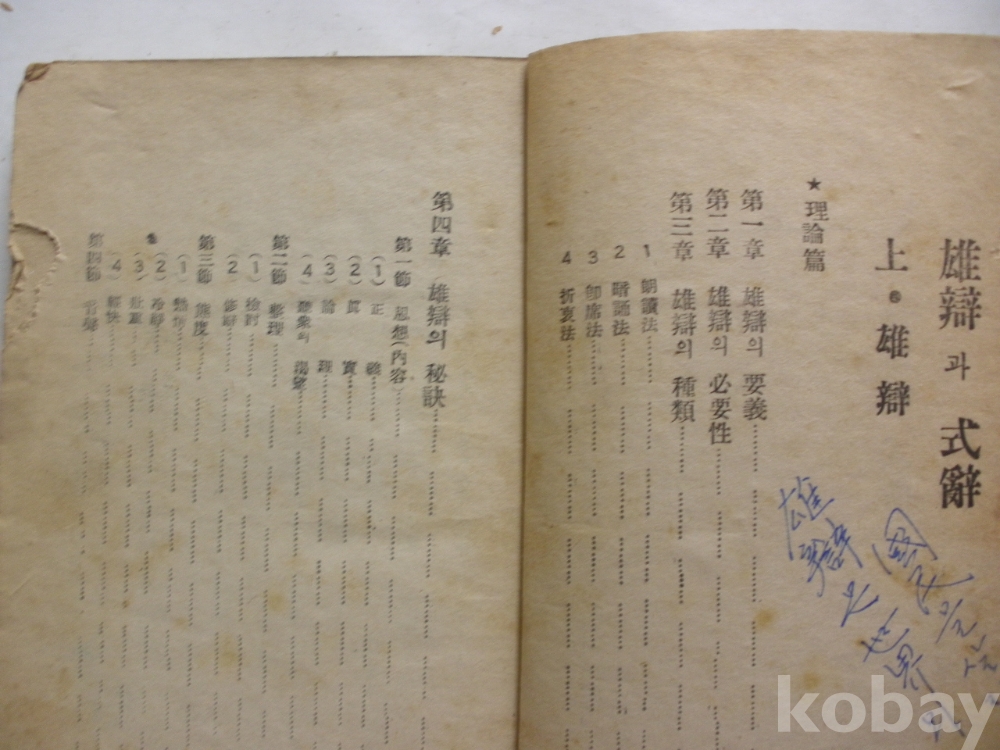 雄辯과 式辭
上・雄辯
★理論篇
第一章 雄辯의 要義
第二章 雄辯의 必要性
第三章 雄辯의 種類
1 朗讀法
2 暗誦法
3 卽席法
4 折衷法
第四章 雄辯의 秘訣
第一節 思想(內容)
(1) 正 確
(2) 眞 實
(3) 論 理
(4)
第二節 整理
(1) 檢討
(2) 修辭
第三節 態度
(1)
(2) 冷靜
(3) 壯重
(4) 輕快
第四節 音聲
雄辯은 世界
kobay